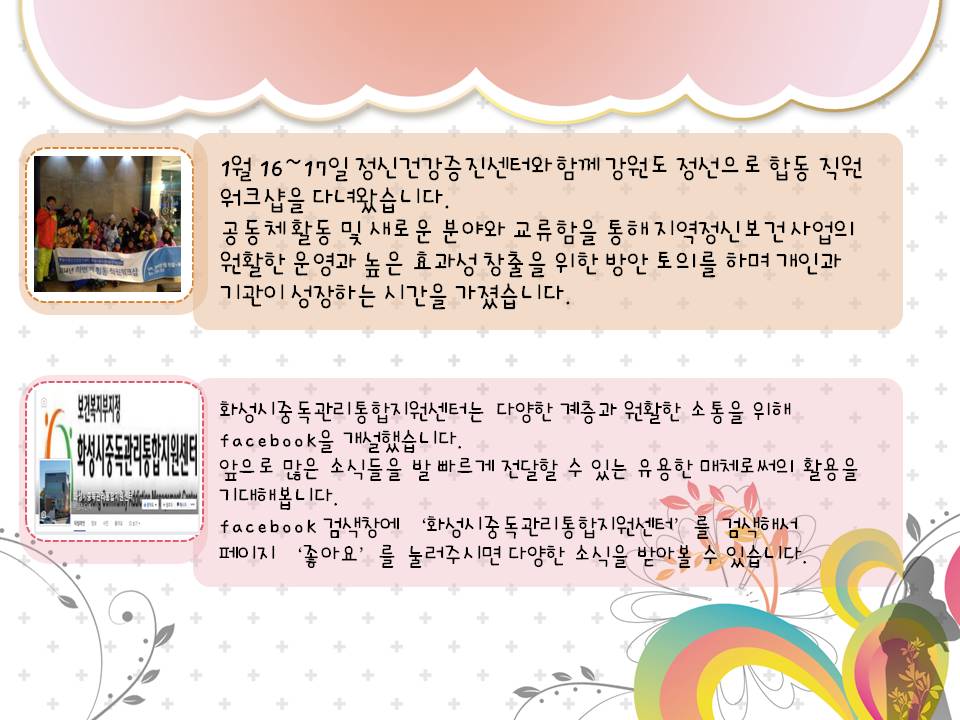 1월 16~17일 정신건강증진센터와 함께 강원도 정선으로 합동 직원
워크샵을 다녀왔습니다.
공동체 활동 및 새로운 분야와 교류함을 통해 지역정신보건사업의
원활한 운영과 높은 효과성 창출을 위한 방안 토의를 하며 개인과
기관이 성장하는 시간을 가졌습니다.
보건복지부지정
화성시중독관리통합지원센터
화성시중독관리통합지원센터는 다양한 계층과 원활한 소통을 위해
facebook을 개설했습니다.
앞으로 많은 소식들을 발 빠르게 전달할 수 있는 유용한 매체로써의 활용을
기대해봅니다.
facebook 검색창에 ‘화성시중독관리통합지원센터’ 를 검색해서
페이지 ‘좋아요’ 를 눌러주시면 다양한 소식을 받아볼 수 있습니다.